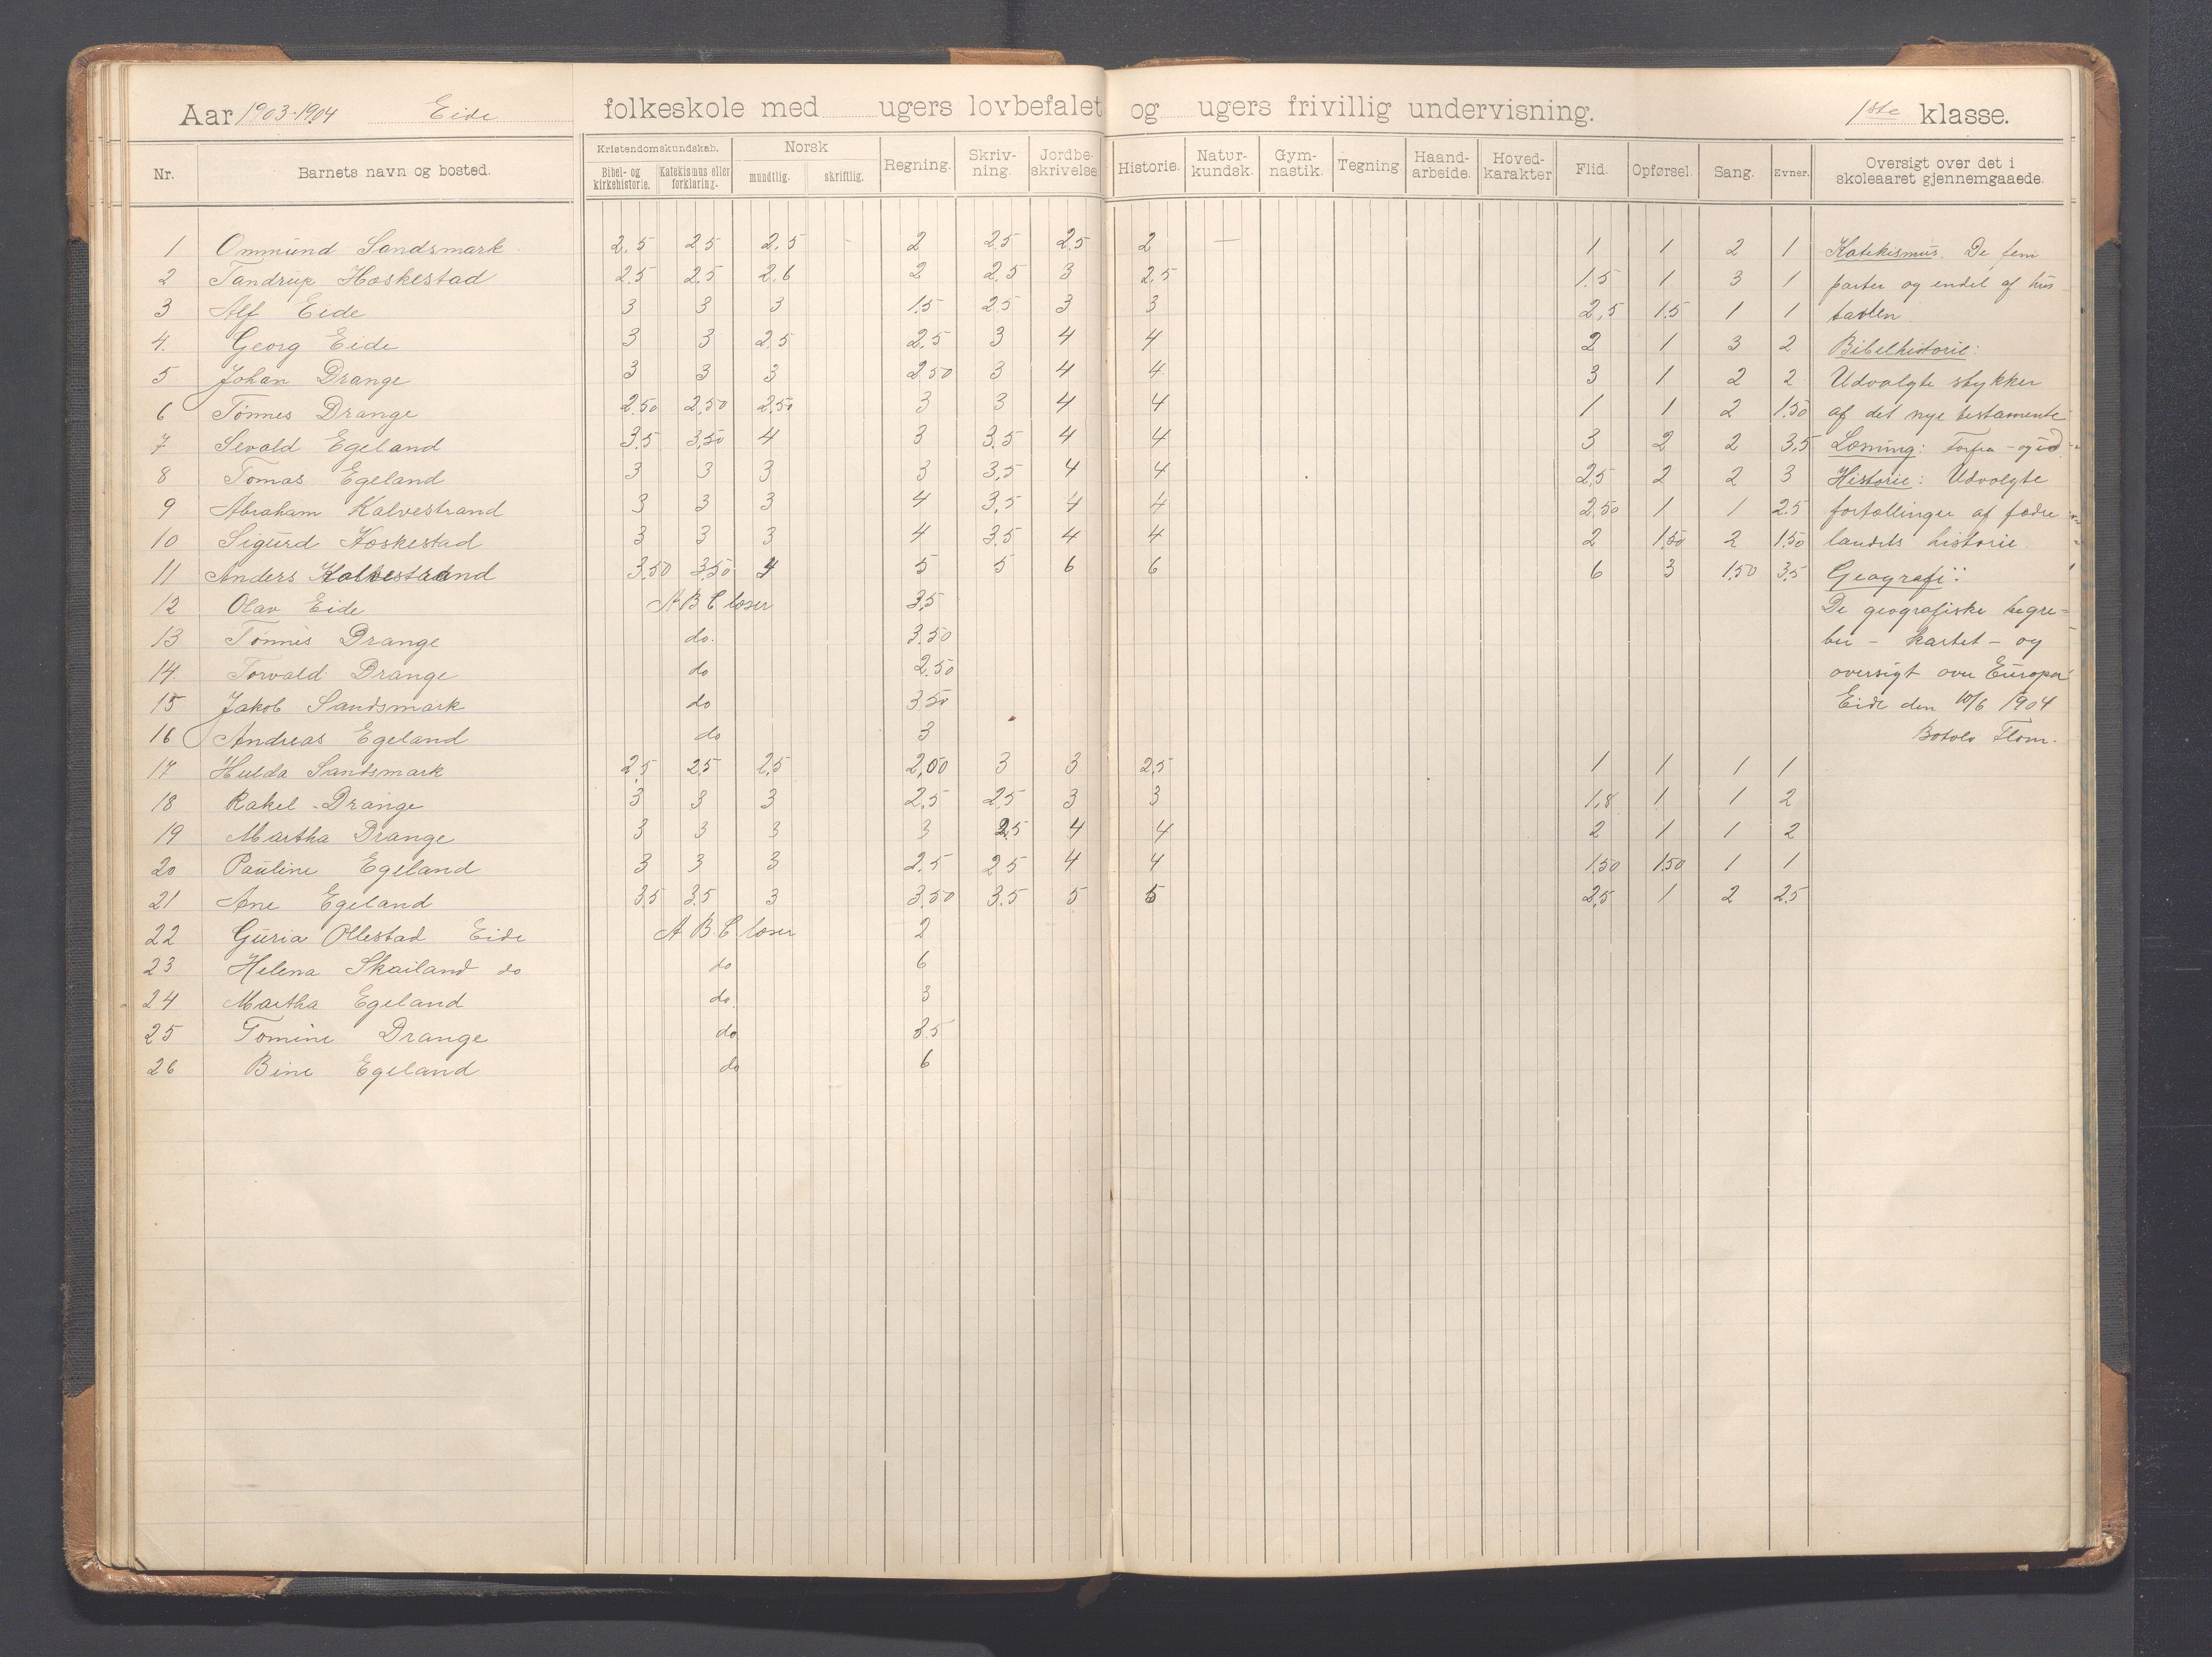 Aar 1903-1904 Eide folkeskole med ugers lovbefalet og ugers frivillig undervisning. 1ste klasse.
Nr. Barnets navn og bosted. Kristendomskundskab. Bibel- og kirkehistorie. Katekismus eller forklaring. Norsk mundtlig. skriftlig. Regning. Skriv-ning. Jordbe-skrivelse Historie. Natur-kundsk. Gym-nastik. Tegning Haand-arbeide. Hoved-karakter Flid. Opførsel. Sang. Evner. Oversigt over det i skoleaaret gjennemgaaede.
1 Ommund Sandsmark 2,5 2,5 2,5 - 2 2,5 2,5 2 — 1 1 2 1 Katekismus. De fem
2 Tandrup Hoskestad 2,5 2,5 2,6 2 2,5 3 2,5 1,5 1 3 1 parter og endel af hus
3 Alf Eide 3 3 3 1,5 2,5 3 3 2,5 1,5 1 1 tavlen.
4. Georg Eide 3 3 2,5 2,5 3 4 4 2 1 3 2 Bibelhistorie:
5 Johan Drange 3 3 3 2,50 3 4 4 3 1 2 2 Udvalgte stykker
6 Tønnes Drange 2,50 2,50 2,50 3 3 4 4 1 1 2 1,50 af det nye testamente
7 Sevald Egeland 3,5 3,50 4 3 3,5 4 4 3 2 2 3,5 Læsning: Forfra - og ud
8 Tomas Egeland 3 3 3 3 3,5 4 4 2,5 2 2 3 Historie: Udvalgte
9 Abraham Kalvestrand 3 3 3 4 3,5 4 4 2,50 1 1 2,5 fortællinger af fædre
10 Sigurd Hoskestad 3 3 3 4 3,5 4 4 2 1,50 2 1,50 landets historie.
11 Anders Kalvestrand 3,50 3,50 4 5 5 6 6 6 3 1,50 3,5 Geografi:
12 Olav Eide A B C læser 3,5 De geografiske begre=
13 Tønnes Drange do. 3.50 ber - kartet - og
14. Torvald Drange do 2.50 oversigt over Europa
15 Jakob Sandsmark do 3.50 Eide den 10/6 1904
16 Andreas Egeland do 3 Botolv Flom.
17 Hulda Sandsmark 2,5 2,5 2,5 2,00 3 3 2,5 1 1 1 1
18 Rakel Drange 3 3 3 2,5 2,5 3 3 1,8 1 1 2
19 Martha Drange 3 3 3 3 2,5 4 4 2 1 1 2
20 Pauline Egeland 3 3 3 2,5 2,5 4 4 1,50 1,50 1 1
21 Ane Egeland 3,5 3,5 3 3,50 3.5 5 5 2,5 1 2 2,5
22 Guria Ollestad Eide A B C læser 2
23 Helena Skailand do do 6
24 Martha Egeland do. 3
25 Tomine Drange do 3.5
26 Bine Egeland do 6